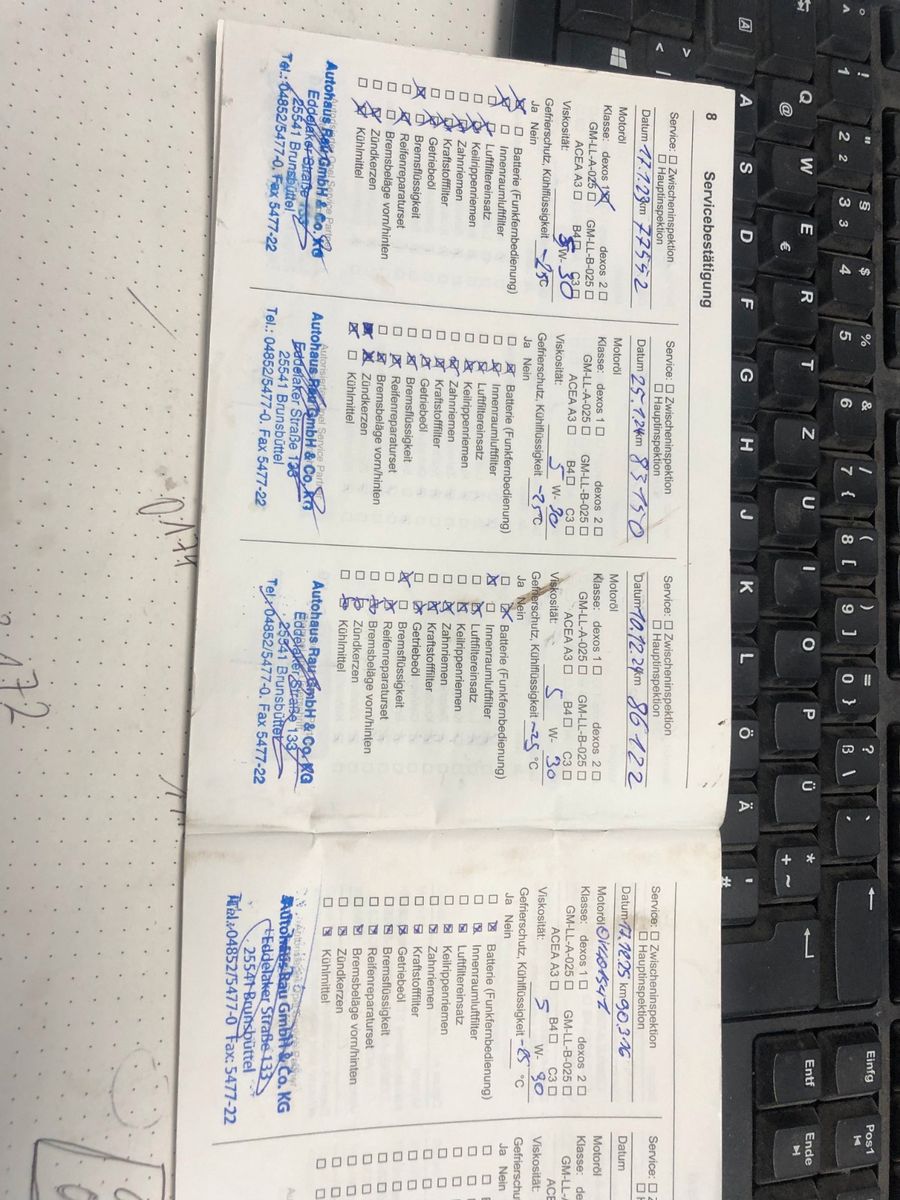 8
Servicebestätigung
Service: ☐ Zwischeninspektion
☐ Hauptinspektion
Datum 17.1.23 km 77552
Motoröl
Klasse: dexos 1 ☒ dexos 2 ☐
GM-LL-A-025 ☐ GM-LL-B-025 ☐
ACEA A3 ☐ B4 ☐ C3 ☐
Viskosität: 5 W- 30
Gefrierschutz, Kühlflüssigkeit -25 °C
Ja Nein
☒ ☐ Batterie (Funkfernbedienung)
☒ ☐ Innenraumluftfilter
☐ ☒ Luftfiltereinsatz
☐ ☒ Keilrippenriemen
☐ ☒ Zahnriemen
☐ ☒ Kraftstofffilter
☐ ☒ Getriebeöl
☒ ☐ Bremsflüssigkeit
☐ ☒ Reifenreparaturset
☐ ☐ Bremsbeläge vorn/hinten
☐ ☒ Zündkerzen
☐ ☒ Kühlmittel
Autohaus Rau GmbH & Co. KG
Eddelaker Straße 133
25541 Brunsbüttel
Tel.: 04852/5477-0, Fax 5477-22
Service: ☐ Zwischeninspektion
☐ Hauptinspektion
Datum 25.1.24 km 83150
Motoröl
Klasse: dexos 1 ☐ dexos 2 ☐
GM-LL-A-025 ☐ GM-LL-B-025 ☐
ACEA A3 ☐ B4 ☐ C3 ☐
Viskosität: 5 W- 30
Gefrierschutz, Kühlflüssigkeit -25 °C
Ja Nein
☐ ☒ Batterie (Funkfernbedienung)
☐ ☒ Innenraumluftfilter
☐ ☒ Luftfiltereinsatz
☐ ☒ Keilrippenriemen
☐ ☒ Zahnriemen
☐ ☒ Kraftstofffilter
☐ ☒ Getriebeöl
☐ ☒ Bremsflüssigkeit
☐ ☒ Reifenreparaturset
☐ ☒ Bremsbeläge vorn/hinten
☒ ☒ Zündkerzen
☒ ☐ Kühlmittel
Autohaus Rau GmbH & Co. KG
Eddelaker Straße 133
25541 Brunsbüttel
Tel.: 04852/5477-0, Fax 5477-22
Service: ☐ Zwischeninspektion
☐ Hauptinspektion
Datum 10.12.24 km 86122
Motoröl
Klasse: dexos 1 ☐ dexos 2 ☐
GM-LL-A-025 ☐ GM-LL-B-025 ☐
ACEA A3 ☐ B4 ☐ C3 ☐
Viskosität: 5 W- 30
Gefrierschutz, Kühlflüssigkeit -25 °C
Ja Nein
☐ ☒ Batterie (Funkfernbedienung)
☒ ☐ Innenraumluftfilter
☐ ☒ Luftfiltereinsatz
☐ ☒ Keilrippenriemen
☐ ☒ Zahnriemen
☐ ☒ Kraftstofffilter
☐ ☒ Getriebeöl
☒ ☐ Bremsflüssigkeit
☐ ☒ Reifenreparaturset
☐ ☒ Bremsbeläge vorn/hinten
☐ ☒ Zündkerzen
☐ ☒ Kühlmittel
Autohaus Rau GmbH & Co. KG
Eddelaker Straße 133
25541 Brunsbüttel
Tel.: 04852/5477-0, Fax 5477-22
Service: ☐ Zwischeninspektion
☐ Hauptinspektion
Datum 17.12.25 km 90316
Motoröl
Klasse: dexos 1 ☐ dexos 2 ☐
GM-LL-A-025 ☐ GM-LL-B-025 ☐
ACEA A3 ☐ B4 ☐ C3 ☐
Viskosität: 5 W- 30
Gefrierschutz, Kühlflüssigkeit -25 °C
Ja Nein
☐ ☒ Batterie (Funkfernbedienung)
☐ ☒ Innenraumluftfilter
☐ ☒ Luftfiltereinsatz
☐ ☒ Keilrippenriemen
☐ ☒ Zahnriemen
☐ ☒ Kraftstofffilter
☐ ☒ Getriebeöl
☐ ☒ Bremsflüssigkeit
☐ ☒ Reifenreparaturset
☐ ☒ Bremsbeläge vorn/hinten
☐ ☒ Zündkerzen
☐ ☒ Kühlmittel
Autohaus Rau GmbH & Co. KG
Eddelaker Straße 133
25541 Brunsbüttel
Tel.: 04852/5477-0 Fax: 5477-22
Service: ☐
Datum
Motoröl
Klasse: dexos
GM-LL-
Viskosität:
Gefrierschutz,
Ja Nein
Einfg
Pos1
Entf
Ende
Q W E R T Z U I O P Ü
A S D F G H J K L Ö Ä